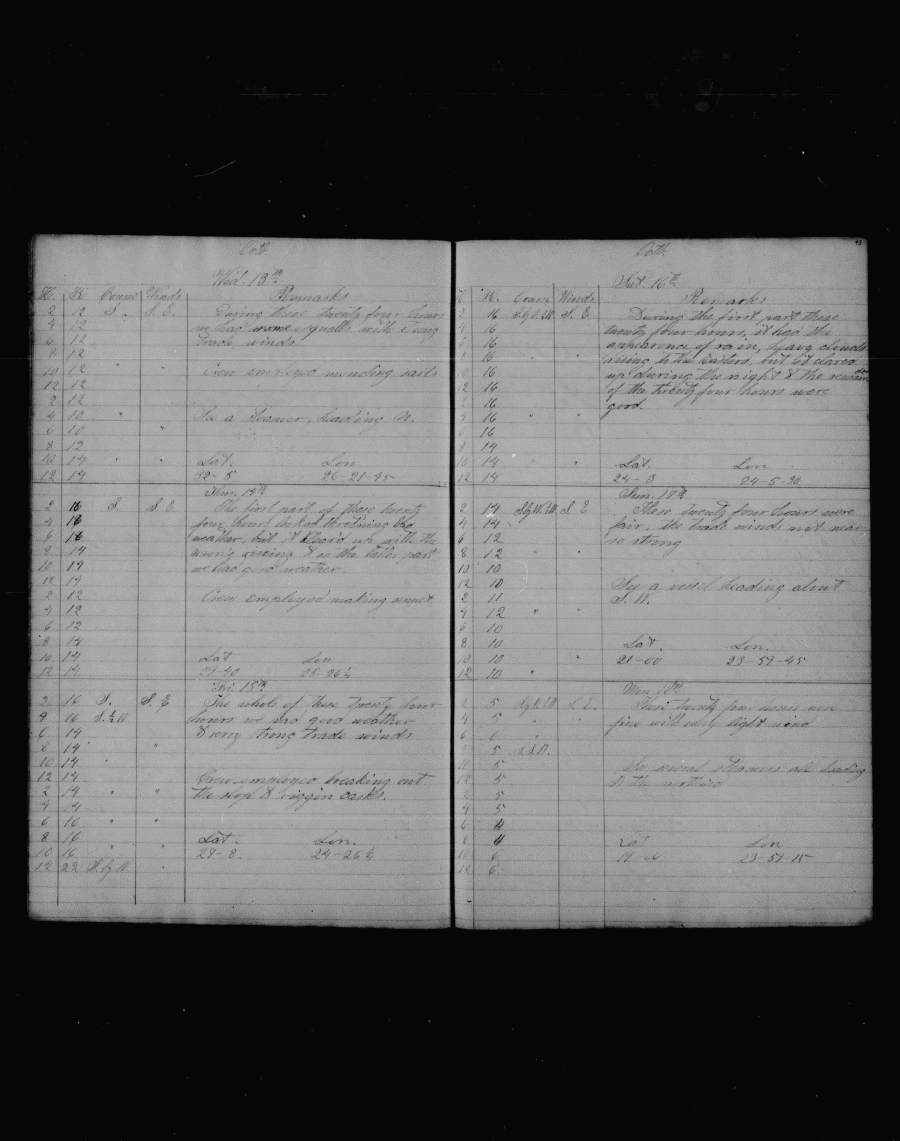 Octb.
Wed. 13th
H. K Course Winds Remarks
2 12 S. S. E. During these twenty four hours
4 12 we had some squalls with strong
6 12 trade winds.
8 12
10 12 " " Crew employed mending sails
12 12
2 12
4 10 " a steamer, heading N.
6 10 "
8 12
10 14 " " Lat. Lon
12 14 32-5 26-21-45
Thur. 14th
2 16 S. S. E. The first part of these twenty
4 16 four hours looked thretning bad
6 16 weather, but it cleard up with the
8 14 & in the latter part
10 14 we had good weather.
12 14
2 12 Crew employed making
4 12
6 12
8 14
10 14 Lat Lon
12 14 25-26½
Fri. 15th
2 16 S. S. E The whole of these twenty four
4 16 S.½W hours we had good weather
6 14 & very strong trade winds
8 14 "
10 14
12 14 Crew employed breaking out
2 14 " " the & riggin casks.
4 14
6 16 " "
8 16 Lat. Lon.
10 16 " " 24-8. 24-26½
12 22 S.by W. "
Octb.
Sat. 16th
H. Course Winds Remarks
2 16 S. E. During the first part these
4 16 twenty four hours, it had the
16 appearence of rain, heavy clouds
8 16 " " rising to the Easterd, but it clared
10 16 up during the night & the remain
12 16 of the twenty four hours were
2 16 good.
16 " "
16
14
10 14 " " Lat. Lon
12 14 24-3 24-5-30
Sun. 17th
2 14 S E These twenty four hours were
4 14 fair, the trade winds not near
6 12 so strong
8 12 " "
10 10
12 10 a vessel heading about
2 11 S.W.
4 12 " "
6 10
8 10 Lat. Lon.
10 10 " 21-00 23-59-45
12 10 "
Mon. 18th
2 5 S. E. These twenty four hours were
4 5 " " fine with very light wind
6 6 "
5
5 steamers all heading
12 5 to the
5
4 5
6 4
8 4 Lat Lon
6 23-57-15
12 6